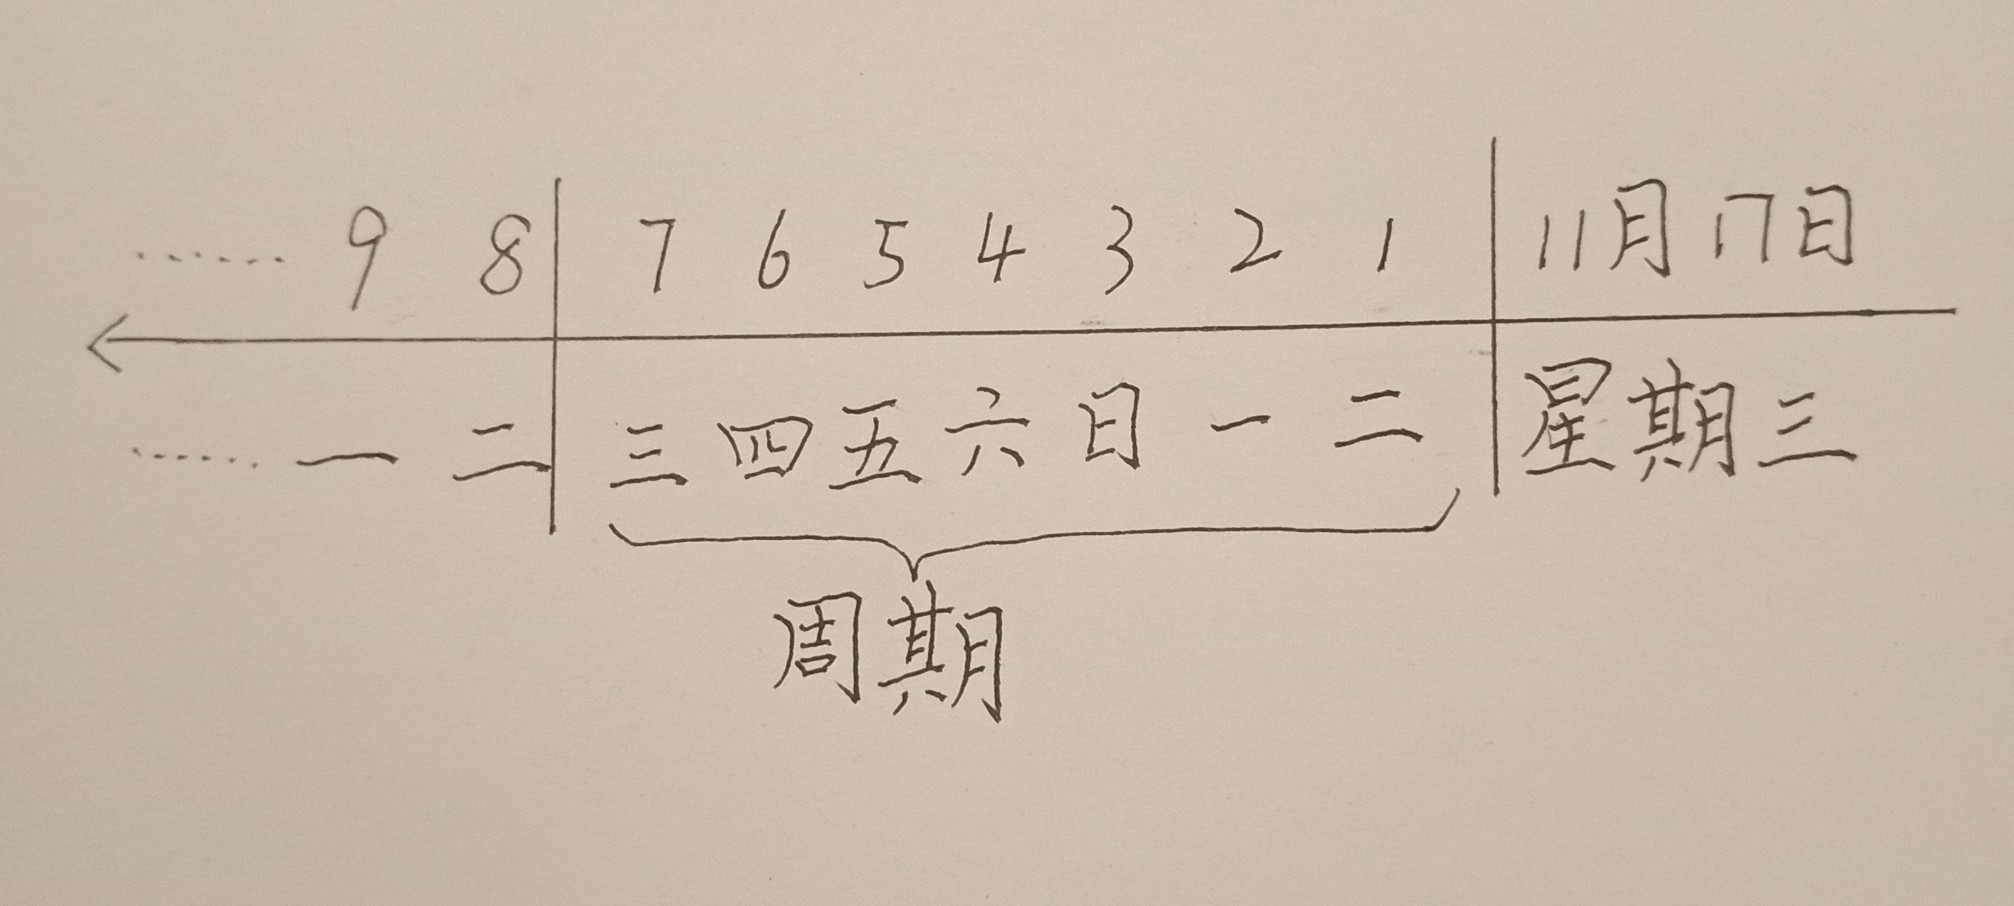 …… 9 8 7 6 5 4 3 2 1 11月17日
…… 一 二 三 四 五 六 日 一 二 星期三
周期